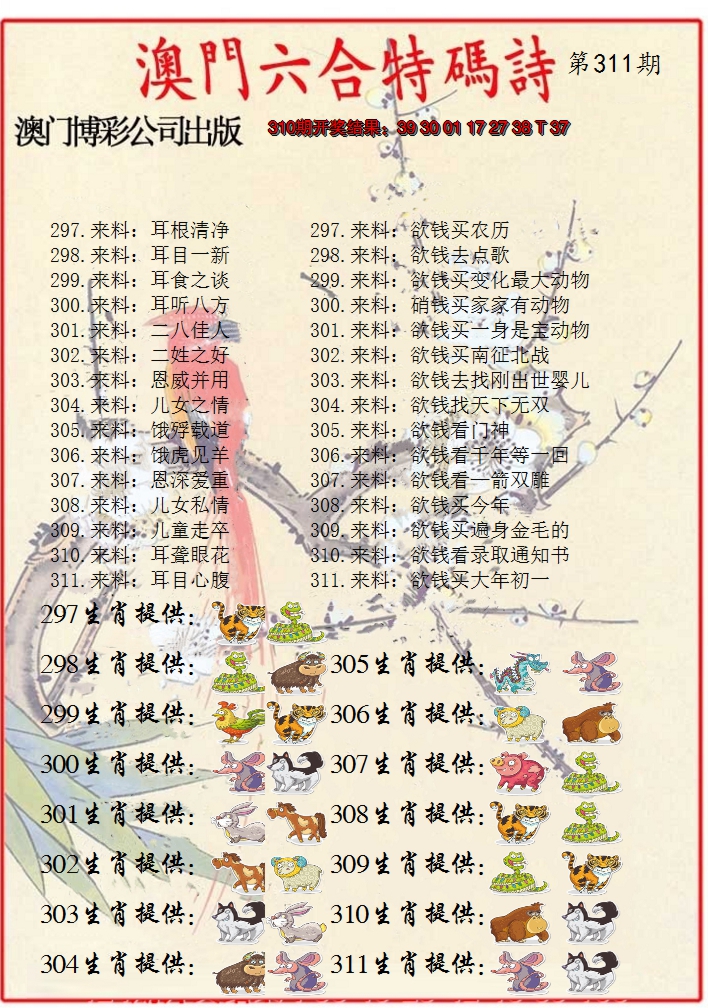 澳門六合特碼詩 第311期
澳门博彩公司出版 310期开奖结果：39 30 01 17 27 38 T 37
297.来料：耳根清净 297.来料：欲钱买农历
298.来料：耳目一新 298.来料：欲钱去点歌
299.来料：耳食之谈 299.来料：欲钱买变化最大动物
300.来料：耳听八方 300.来料：硝钱买家家有动物
301.来料：二八佳人 301.来料：欲钱买一身是宝动物
302.来料：二姓之好 302.来料：欲钱买南征北战
303.来料：恩威并用 303.来料：欲钱去找刚出世婴儿
304.来料：儿女之情 304.来料：欲钱找天下无双
305.来料：饿殍载道 305.来料：欲钱看门神
306.来料：饿虎见羊 306.来料：欲钱看千年等一回
307.来料：恩深爱重 307.来料：欲钱看一箭双雕
308.来料：儿女私情 308.来料：欲钱买今年
309.来料：儿童走卒 309.来料：欲钱买遍身金毛的
310.来料：耳聋眼花 310.来料：欲钱看录取通知书
311.来料：耳目心腹 311.来料：欲钱买大年初一
297生肖提供：
298生肖提供： 305生肖提供：
299生肖提供： 306生肖提供：
300生肖提供： 307生肖提供：
301生肖提供： 308生肖提供：
302生肖提供： 309生肖提供：
303生肖提供： 310生肖提供：
304生肖提供： 311生肖提供：